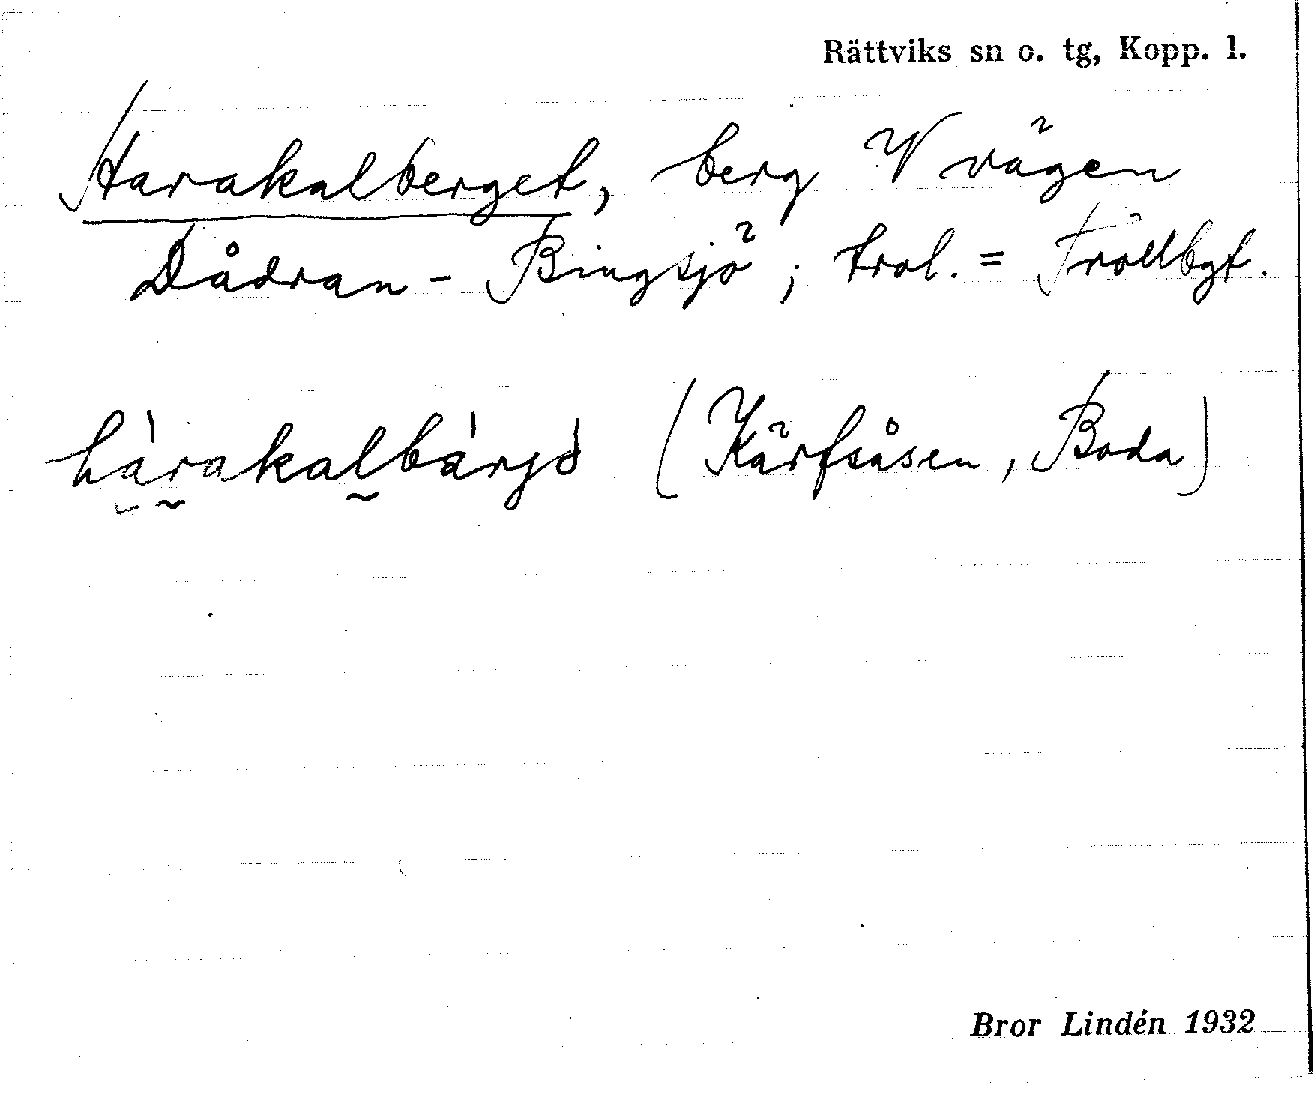 Rättviks sn o. tg, Kopp. l.
Harakalberget, berg V vägen
Dådran - Bingsjö; trol. = Tröllbgt.
hàrakalbárjə̀ (Kärfsåsen, Boda)
Bror Lindén 1932